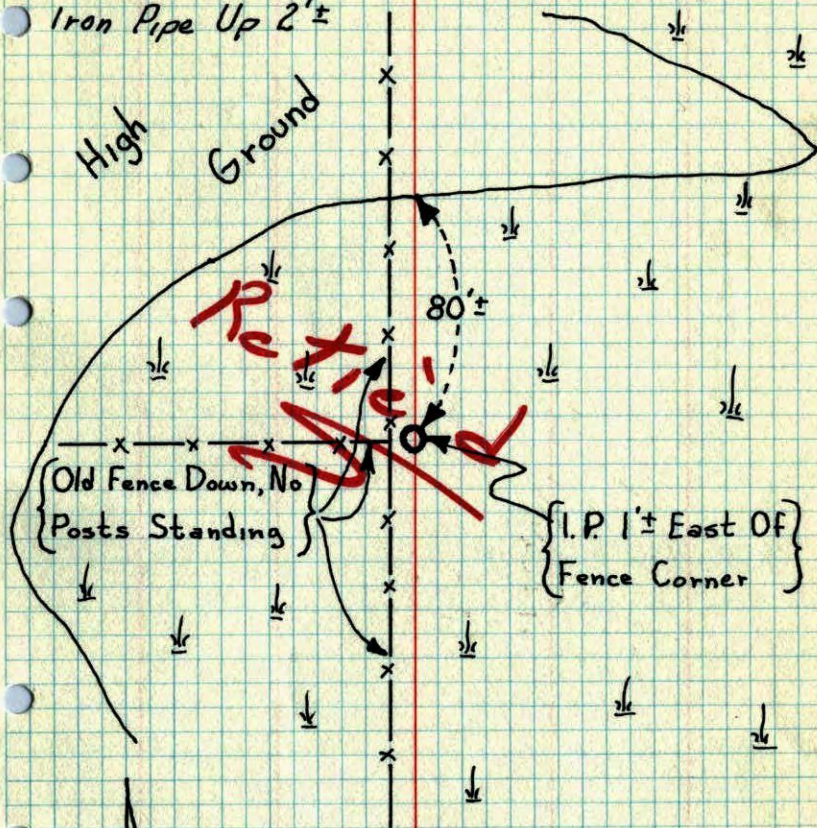 Iron Pipe Up 2'±
High Ground
80'±
Re-tie'd
Old Fence Down, No
Posts Standing
I.P. 1'± East Of
Fence Corner